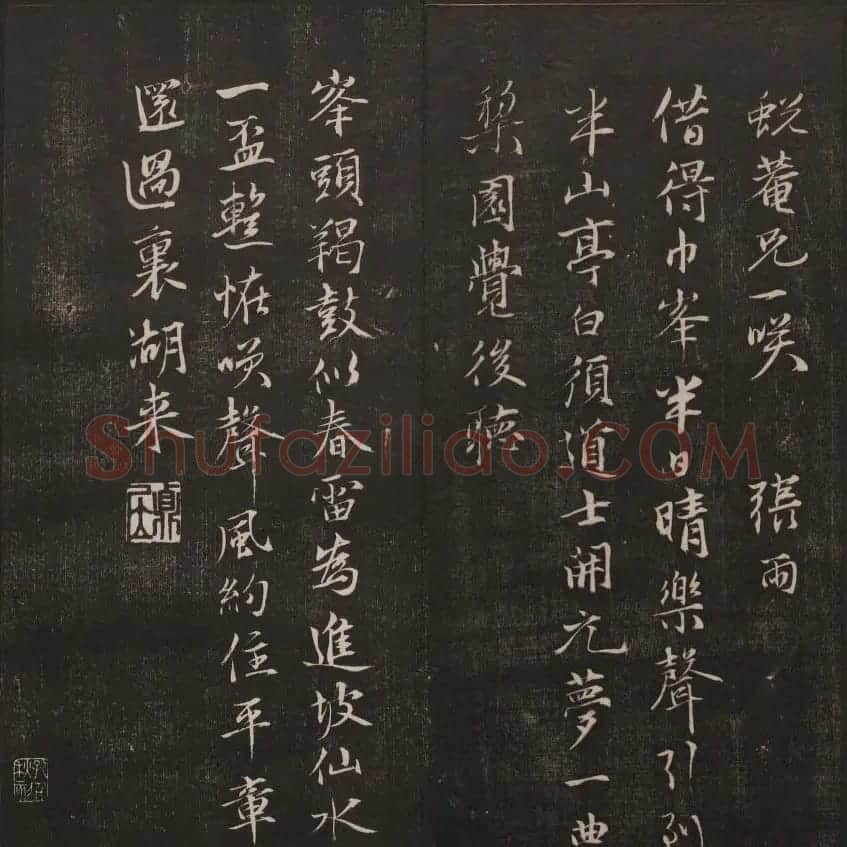 蛻菴兄一咲　張雨
借得巾峯半日晴樂聲引到
半山亭白須道士開元夢一曲
棃園覺後聽
峯頭羯鼓似春雷為進坡仙水
一盃整恠咲聲風約住平章
還過裏湖来
Shufaziliao.COM